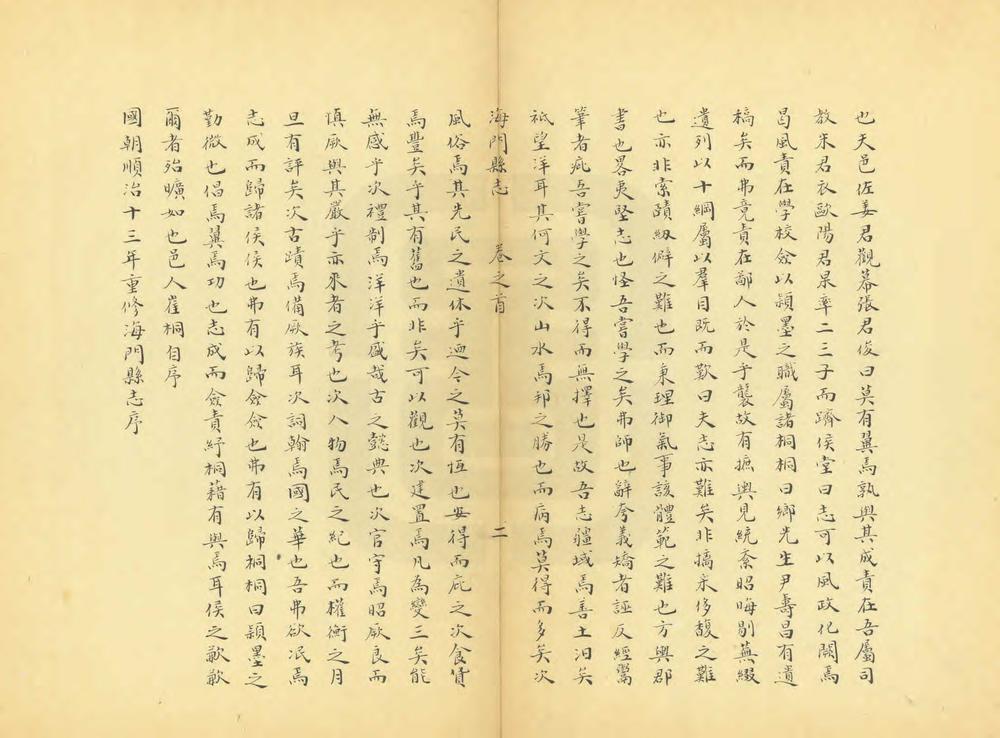 也天邑佐姜君觀幕張君俊曰莫有翼焉孰與其成責在吾屬司
教朱君衣歐陽君杲率二三子而躋侯堂曰志可以風政化闕焉
昌風責在學校僉以穎墨之職屬諸桐桐曰鄉先生尹壽昌有遺
稿矣而弗竟責在鄙人於是乎襲故有摭輿見統紊昭晦剔蕪綴
遺列以十綱屬以羣目既而歎曰夫志亦難矣非摛采侈馥之難
也亦非索賾紉僻之難也而東理御氣事該體範之難也方輿郡
書也畧夷堅志也怪吾嘗學之矣弗師也辭夸義矯者誣反經鬻
筆者疵吾嘗學之矣不得而無擇也是故吾志疆域焉善土汨矣
祗望洋耳其何文之次山水焉邦之勝也而病焉莫得而多矣次
海門縣志 卷之首 二
風俗焉其先民之遺休乎迺今之莫有恆也安得而庇之次食貨
焉豐矣乎其有舊也而非矣可以觀也次建置焉凡為變三矣能
無感乎次禮制焉洋洋乎盛哉古之懿典也次官守焉昭厥良而
慎厥與其嚴乎亦來者之考也次人物焉民之紀也而權衡之月
旦有評矣次古蹟焉備厥族耳次詞翰焉國之華也吾弗欲泯焉
志成而歸諸侯侯也弗有以歸僉僉也弗有以歸桐桐曰穎墨之
勤微也倡焉翼焉功也志成而僉責紓桐藉有與焉耳侯之歉歉
爾者殆曠如也邑人崔桐自序
國朝順治十三年重修海門縣志序